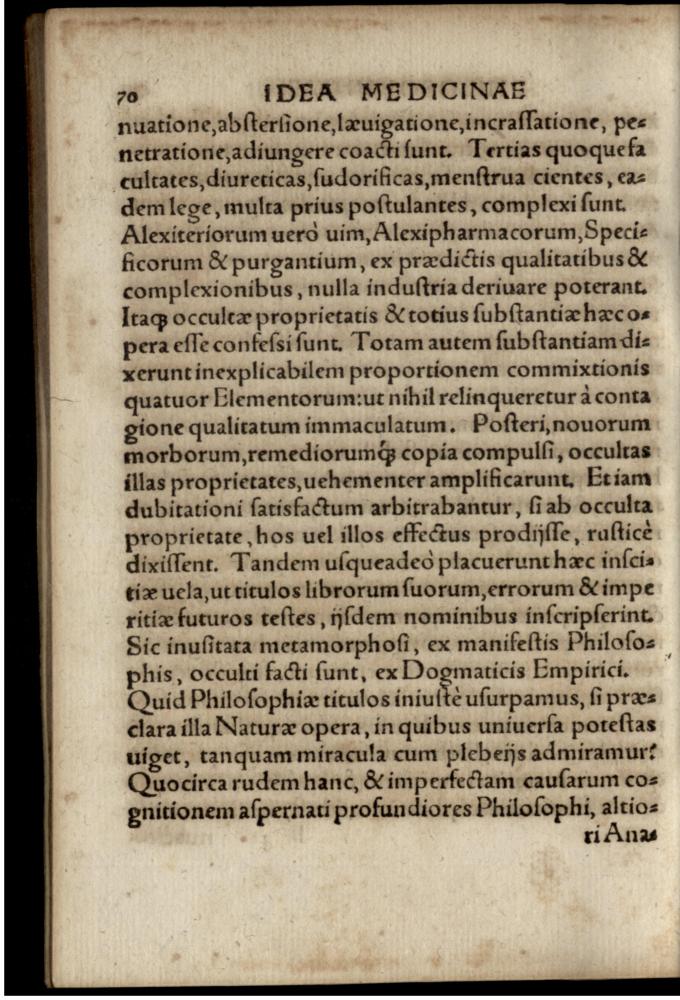 70 IDEA MEDICINAE
nuatione,abſterſione,læuigatione,incraſſatione, pe-
netratione,adiungere coacti ſunt. Tertias quoque fa
cultates,diureticas,ſudorificas,menſtrua cientes, ea-
dem lege, multa prius poſtulantes, complexi ſunt.
Alexiteriorum uerò uim,Alexipharmacorum,Speci-
ficorum & purgantium, ex prædictis qualitatibus &
complexionibus, nulla induſtria deriuare poterant.
Itaq; occultæ proprietatis & totius ſubſtantiæ hæc o-
pera eſſe confeſsi ſunt. Totam autem ſubſtantiam di-
xerunt inexplicabilem proportionem commixtionis
quatuor Elementorum:ut nihil relinqueretur à conta
gione qualitatum immaculatum. Poſteri,nouorum
morborum,remediorumq́; copia compulſi, occultas
illas proprietates,uehementer amplificarunt. Etiam
dubitationi ſatisfactum arbitrabantur, ſi ab occulta
proprietate, hos uel illos effectus prodijſſe, ruſticè
dixiſſent. Tandem uſqueadeò placuerunt hæc inſci-
tiæ uela,ut titulos librorum ſuorum,errorum & impe
ritiæ futuros teſtes, ijſdem nominibus inſcripſerint.
Sic inuſitata metamorphoſi, ex manifeſtis Philoſo-
phis, occulti facti ſunt, ex Dogmaticis Empirici.
Quid Philoſophiæ titulos iniuſtè uſurpamus, ſi præ-
clara illa Naturæ opera, in quibus uniuerſa poteſtas
uiget, tanquam miracula cum plebeijs admiramur?
Quocirca rudem hanc, & imperfectam cauſarum co-
gnitionem aſpernati profundiores Philoſophi, altio-
ri Ana-